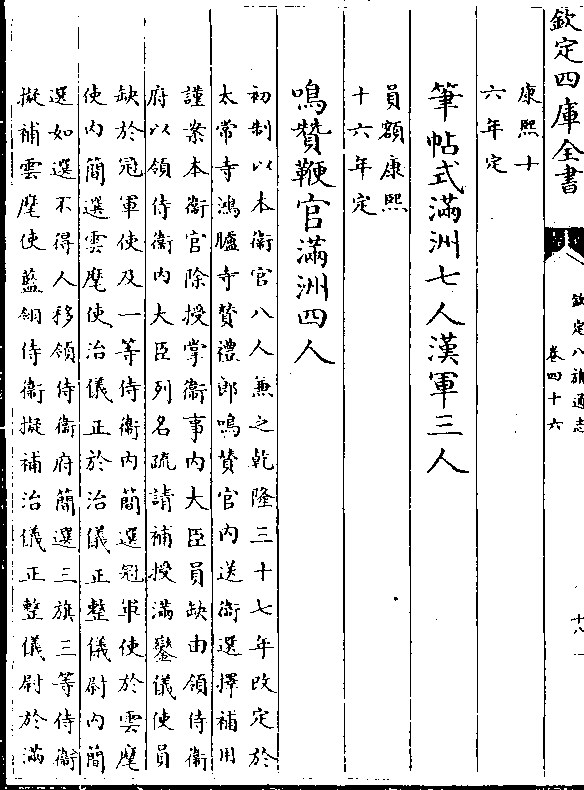 欽定四庫全書
欽定八旗通志
卷四十六
十八
康熙十
六年定
筆帖式滿洲七人漢軍三人
員額康熙
十六年定
鳴贊鞭官滿洲四人
初制以本衛官八人兼之乾隆三十七年改定於
太常寺鴻臚寺贊禮郎鳴贊官内送衛選擇補用
謹案本衛官除授掌衛事内大臣員缺由領侍衛
府以領侍衛内大臣列名疏請補授滿鑾儀使員
缺於冠軍使及一等侍衛内簡選冠軍使於雲麾
使内簡選雲麾使治儀正於治儀正整儀尉内簡
選如選不得人移領侍衛府簡選三旗三等侍衛
擬補雲麾使藍翎侍衛擬補治儀正整儀尉於滿